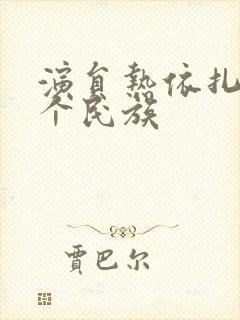 演員熱依扎
个民族
賈巴尔